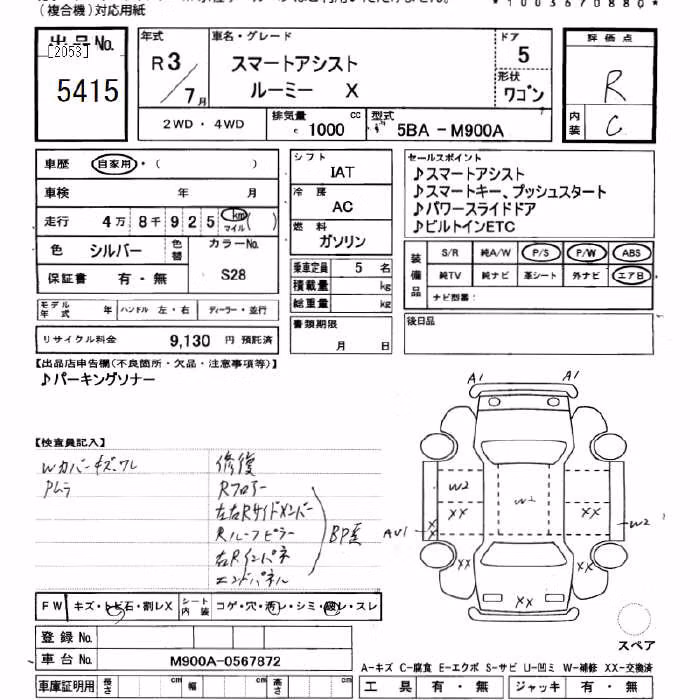 (複合機)対応用紙
*1003670880*
出品No.
[2053]
5415
年式
R3/7月
車名・グレード
スマートアシスト
ルーミー X
ドア
5
形状
ワゴン
評価点
R
内装
C
2WD・4WD
排気量
cc
1000
型式
5BA-M900A
車歴 自家用・( )
車検 年 月
走行 4万8千925 km マイル ( )
色 シルバー 色替 カラーNo. S28
保証書 有・無
モデル年式 年 ハンドル 左・右 ディーラー・並行
リサイクル料金 9,130 円 預託済
シフト
IAT
冷房
AC
燃料
ガソリン
乗車定員 5 名
積載量 kg
総重量 kg
書類期限
月 日
セールスポイント
♪スマートアシスト
♪スマートキー、プッシュスタート
♪パワースライドドア
♪ビルトインETC
装備品
S/R 純A/W P/S P/W ABS
純TV 純ナビ 革シート 外ナビ エアB
ナビ型番:
後日品
【出品店申告欄(不良箇所・欠品・注意事項等)】
♪パーキングソナー
【検査員記入】
Wカバーキズ、ワレ
Pムラ
修復
Rフロアー
左右Rサイドメンバー
Rルーフピラー
右Rインパネ
エンドパネル
BP歪
A1 A1
W2 W2
XX XX
AU1 X X W2
XX XX
XX
スペア
FW キズ・トビ石・割レX シート内装 コゲ・穴・汚レ・シミ・破レ・スレ
登録No.
車台No. M900A-0567872
車庫証明用 長さ cm 幅 cm 高さ cm
A-キズ C-腐食 E-エクボ S-サビ U-凹ミ W-補修 XX-交換済
工具 有・無 ジャッキ 有・無